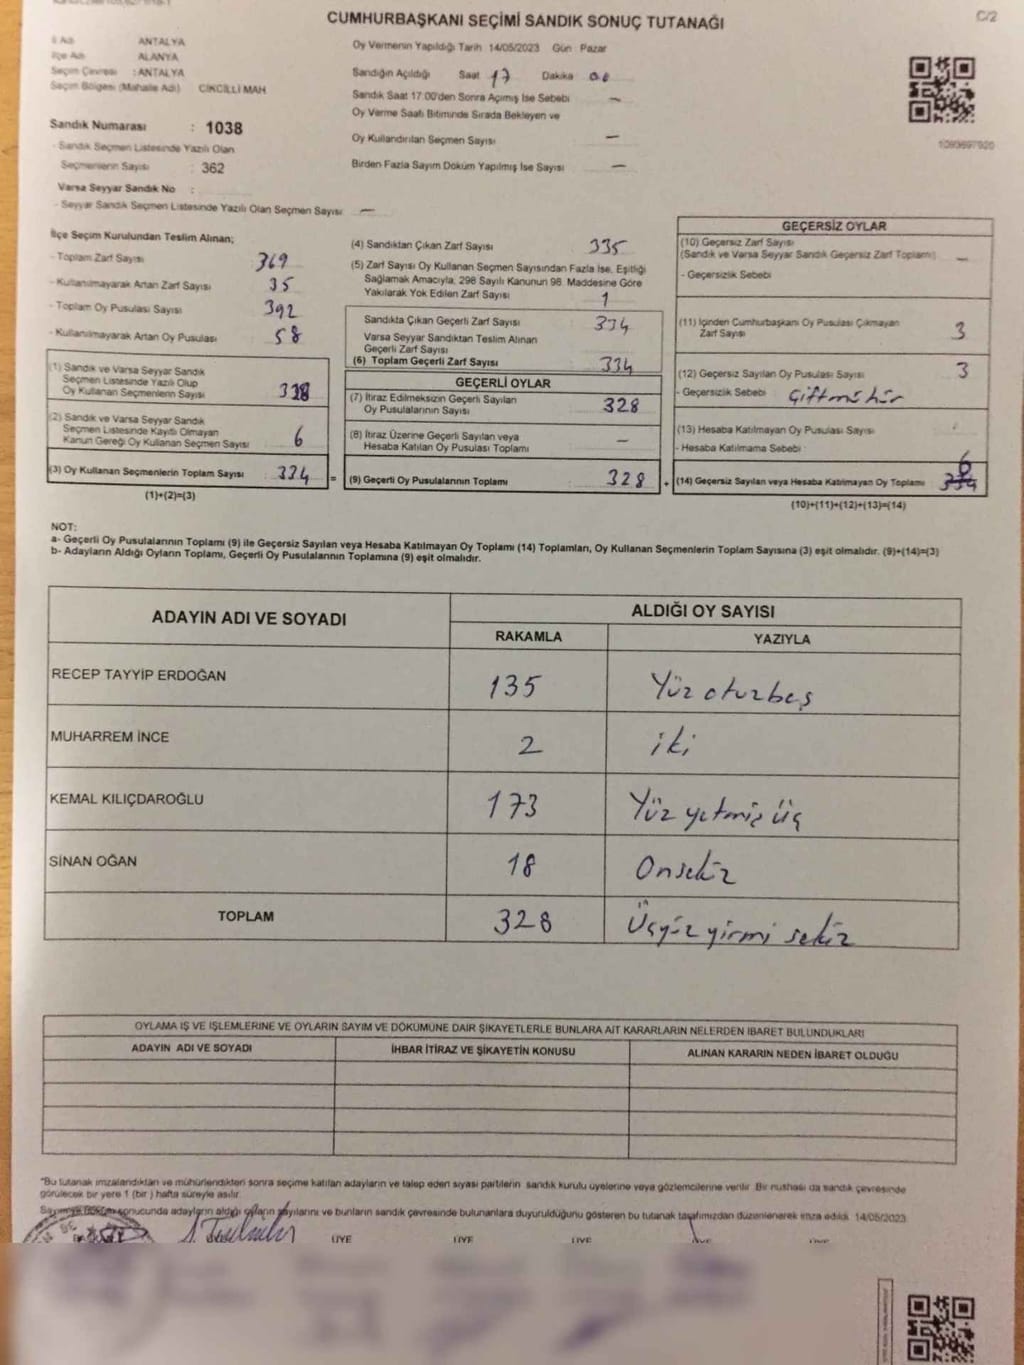 CUMHURBAŞKANI SEÇİMİ SANDIK SONUÇ TUTANAĞI
C/2
İl Adı ANTALYA
İlçe Adı ALANYA
Seçim Çevresi : ANTALYA
Seçim Bölgesi (Mahalle Adı) CİKCİLLİ MAH
Sandık Numarası : 1038
- Sandık Seçmen Listesinde Yazılı Olan
Seçmenlerin Sayısı : 362
Varsa Seyyar Sandık No :
- Seyyar Sandık Seçmen Listesinde Yazılı Olan Seçmen Sayısı —
Oy Vermenin Yapıldığı Tarih 14/05/2023 Gün Pazar
Sandığın Açıldığı Saat 17 Dakika 00
Sandık Saat 17:00'den Sonra Açımış İse Sebebi —
Oy Verme Saati Bitiminde Sırada Bekleyen ve
Oy Kullandırılan Seçmen Sayısı —
Birden Fazla Sayım Döküm Yapılmış İse Sayısı —
1093697920
İlçe Seçim Kurulundan Teslim Alınan;
- Toplam Zarf Sayısı 369
- Kullanılmayarak Artan Zarf Sayısı 35
- Toplam Oy Pusulası Sayısı 392
- Kullanılmayarak Artan Oy Pusulası 58
(1) Sandık ve Varsa Seyyar Sandık
Seçmen Listesinde Yazılı Olup
Oy Kullanan Seçmenlerin Sayısı 328
(2) Sandık ve Varsa Seyyar Sandık
Seçmen Listesinde Kayıtlı Olmayan
Kanun Gereği Oy Kullanan Seçmen Sayısı 6
(3) Oy Kullanan Seçmenlerin Toplam Sayısı : 334 =
(1)+(2)=(3)
(4) Sandıktan Çıkan Zarf Sayısı 335
(5) Zarf Sayısı Oy Kullanan Seçmen Sayısından Fazla İse, Eşitliği
Sağlamak Amacıyla, 298 Sayılı Kanunun 98. Maddesine Göre
Yakılarak Yok Edilen Zarf Sayısı 1
Sandıkta Çıkan Geçerli Zarf Sayısı : 334
Varsa Seyyar Sandıktan Teslim Alınan
Geçerli Zarf Sayısı
(6) Toplam Geçerli Zarf Sayısı 334
GEÇERLİ OYLAR
(7) İtiraz Edilmeksizin Geçerli Sayılan
Oy Pusulalarının Sayısı 328
(8) İtiraz Üzerine Geçerli Sayılan veya
Hesaba Katılan Oy Pusulası Toplamı —
(9) Geçerli Oy Pusulalarının Toplamı 328 +
GEÇERSİZ OYLAR
(10) Geçersiz Zarf Sayısı
(Sandık ve Varsa Seyyar Sandık Geçersiz Zarf Toplamı) —
- Geçersizlik Sebebi
(11) İçinden Cumhurbaşkanı Oy Pusulası Çıkmayan
Zarf Sayısı 3
(12) Geçersiz Sayılan Oy Pusulası Sayısı 3
- Geçersizlik Sebebi : Çiftmühür
(13) Hesaba Katılmayan Oy Pusulası Sayısı
- Hesaba Katılmama Sebebi
(14) Geçersiz Sayılan veya Hesaba Katılmayan Oy Toplamı 6
(10)+(11)+(12)+(13)=(14)
NOT:
a- Geçerli Oy Pusulalarının Toplamı (9) ile Geçersiz Sayılan veya Hesaba Katılmayan Oy Toplamı (14) Toplamları, Oy Kullanan Seçmenlerin Toplam Sayısına (3) eşit olmalıdır. (9)+(14)=(3)
b- Adayların Aldığı Oyların Toplamı, Geçerli Oy Pusulalarının Toplamına (9) eşit olmalıdır.
ADAYIN ADI VE SOYADI ALDIĞI OY SAYISI
RAKAMLA YAZIYLA
RECEP TAYYİP ERDOĞAN 135 Yüz oturbeş
MUHARREM İNCE 2 iki
KEMAL KILIÇDAROĞLU 173 Yüz yetmiş üç
SİNAN OĞAN 18 Onsekiz
TOPLAM 328 Üçyüz yirmi sekiz
OYLAMA İŞ VE İŞLEMLERİNE VE OYLARIN SAYIM VE DÖKÜMÜNE DAİR ŞİKAYETLERLE BUNLARA AİT KARARLARIN NELERDEN İBARET BULUNDUKLARI
ADAYIN ADI VE SOYADI İHBAR İTİRAZ VE ŞİKAYETİN KONUSU ALINAN KARARIN NEDEN İBARET OLDUĞU
"Bu tutanak imzalandıktan ve mühürlendikten sonra seçime katılan adayların ve talep eden siyasi partilerin sandık kurulu üyelerine veya gözlemcilerine verilir. Bir nüshası da sandık çevresinde
görülecek bir yere 1 (bir) hafta süreyle asılır.
Sayım ve döküm sonucunda adayların aldığı oyların sayılarını ve bunların sandık çevresinde bulunanlara duyurulduğunu gösteren bu tutanak tarafımızdan düzenlenerek imza edildi. 14/05/2023
ÜYE ÜYE ÜYE ÜYE ÜYE